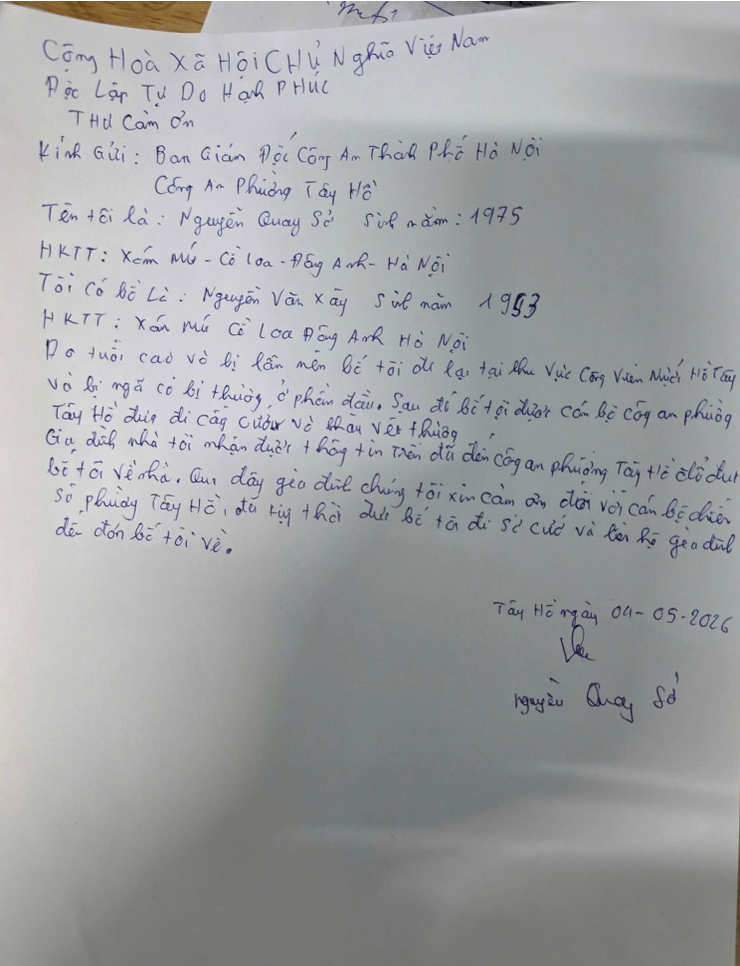 Cộng Hoà Xã Hội CHủ Nghĩa Việt Nam
Độc Lập Tự Do Hạnh PHÚC
THƯ Cảm Ơn
Kính Gửi: Ban Giám Đốc Công An Thành Phố Hà Nội
Công An Phường Tây Hồ
Tên tôi là: Nguyễn Quay Sở Sinh năm: 1975
HKTT: Xóm Mít - Cổ Loa - Đông Anh - Hà Nội
Tôi Có bố Là: Nguyễn Văn Xây Sinh năm 1953
HKTT: Xóm Mít Cổ Loa Đông Anh Hà Nội
Do tuổi cao và bị lẫn nên bố tôi đi lại tại khu Vực Công Viên Nước Hồ Tây
và bị ngã có bị thương ở phần đầu. Sau đó bố tôi được cán bộ công an phường
Tây Hồ đưa đi cấp cứu và khâu vết thương
Gia đình nhà tôi nhận được thông tin trên đã đến công an phường Tây Hồ để đưa
bố tôi về nhà. Qua đây gia đình chúng tôi xin cảm ơn đối với cán bộ chiến
sĩ phường Tây Hồ, đã kịp thời đưa bố tôi đi sơ cứu và liên hệ gia đình
đến đón bố tôi về.
Tây Hồ ngày 04-05-2026
Nguyễn Quay Sở